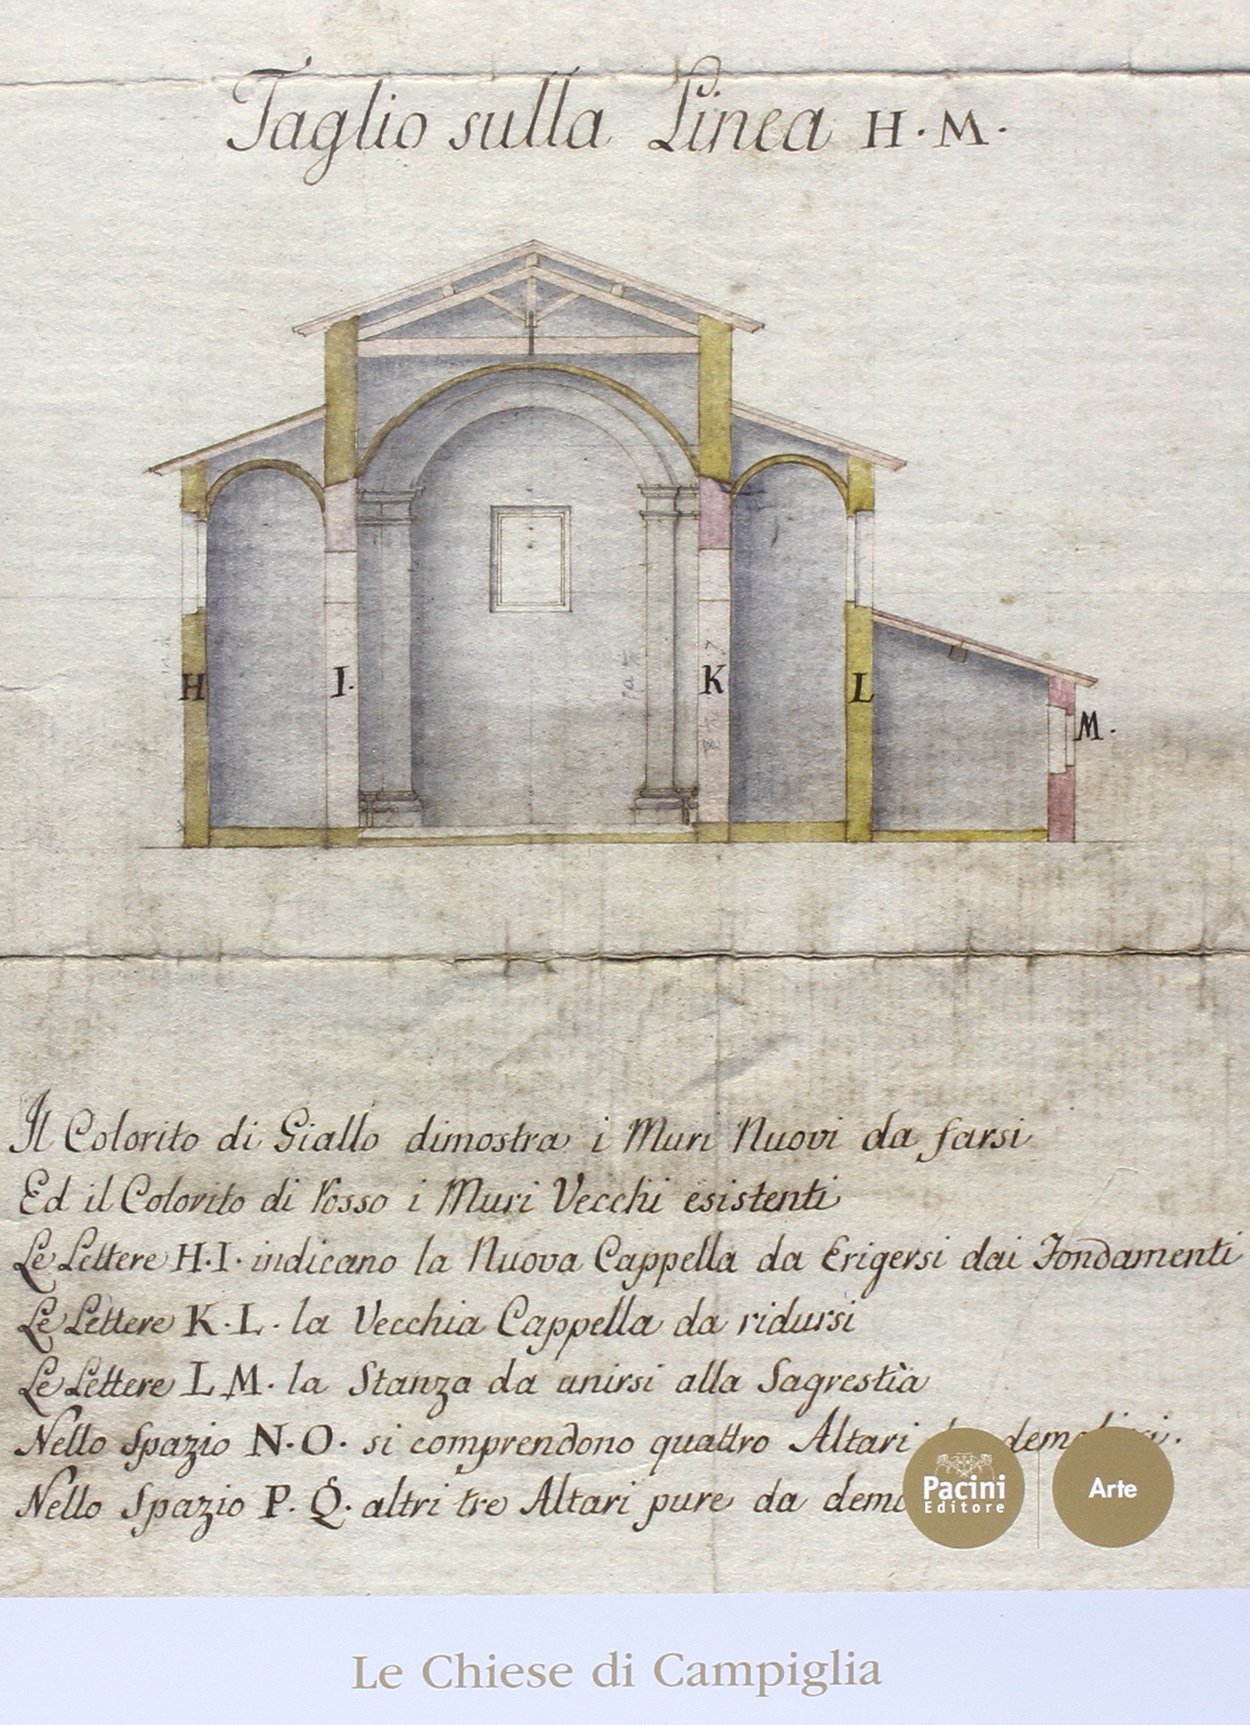 Taglio sulla Linea H. M.
H
I.
K
L
M.
Il Colorito di Giallo dimostra i Muri Nuovi da farsi
Ed il Colorito di Rosso i Muri Vecchi esistenti
Le Lettere H. I. indicano la Nuova Cappella da Erigersi dai Fondamenti
Le Lettere K. L. la Vecchia Cappella da ridursi
Le Lettere L M. la Stanza da unirsi alla Sagrestia
Nello Spazio N. O. si comprendono quattro Altari
Nello Spazio P. Q. altri tre Altari pure da
Pacini
Editore
Arte
Le Chiese di Campiglia